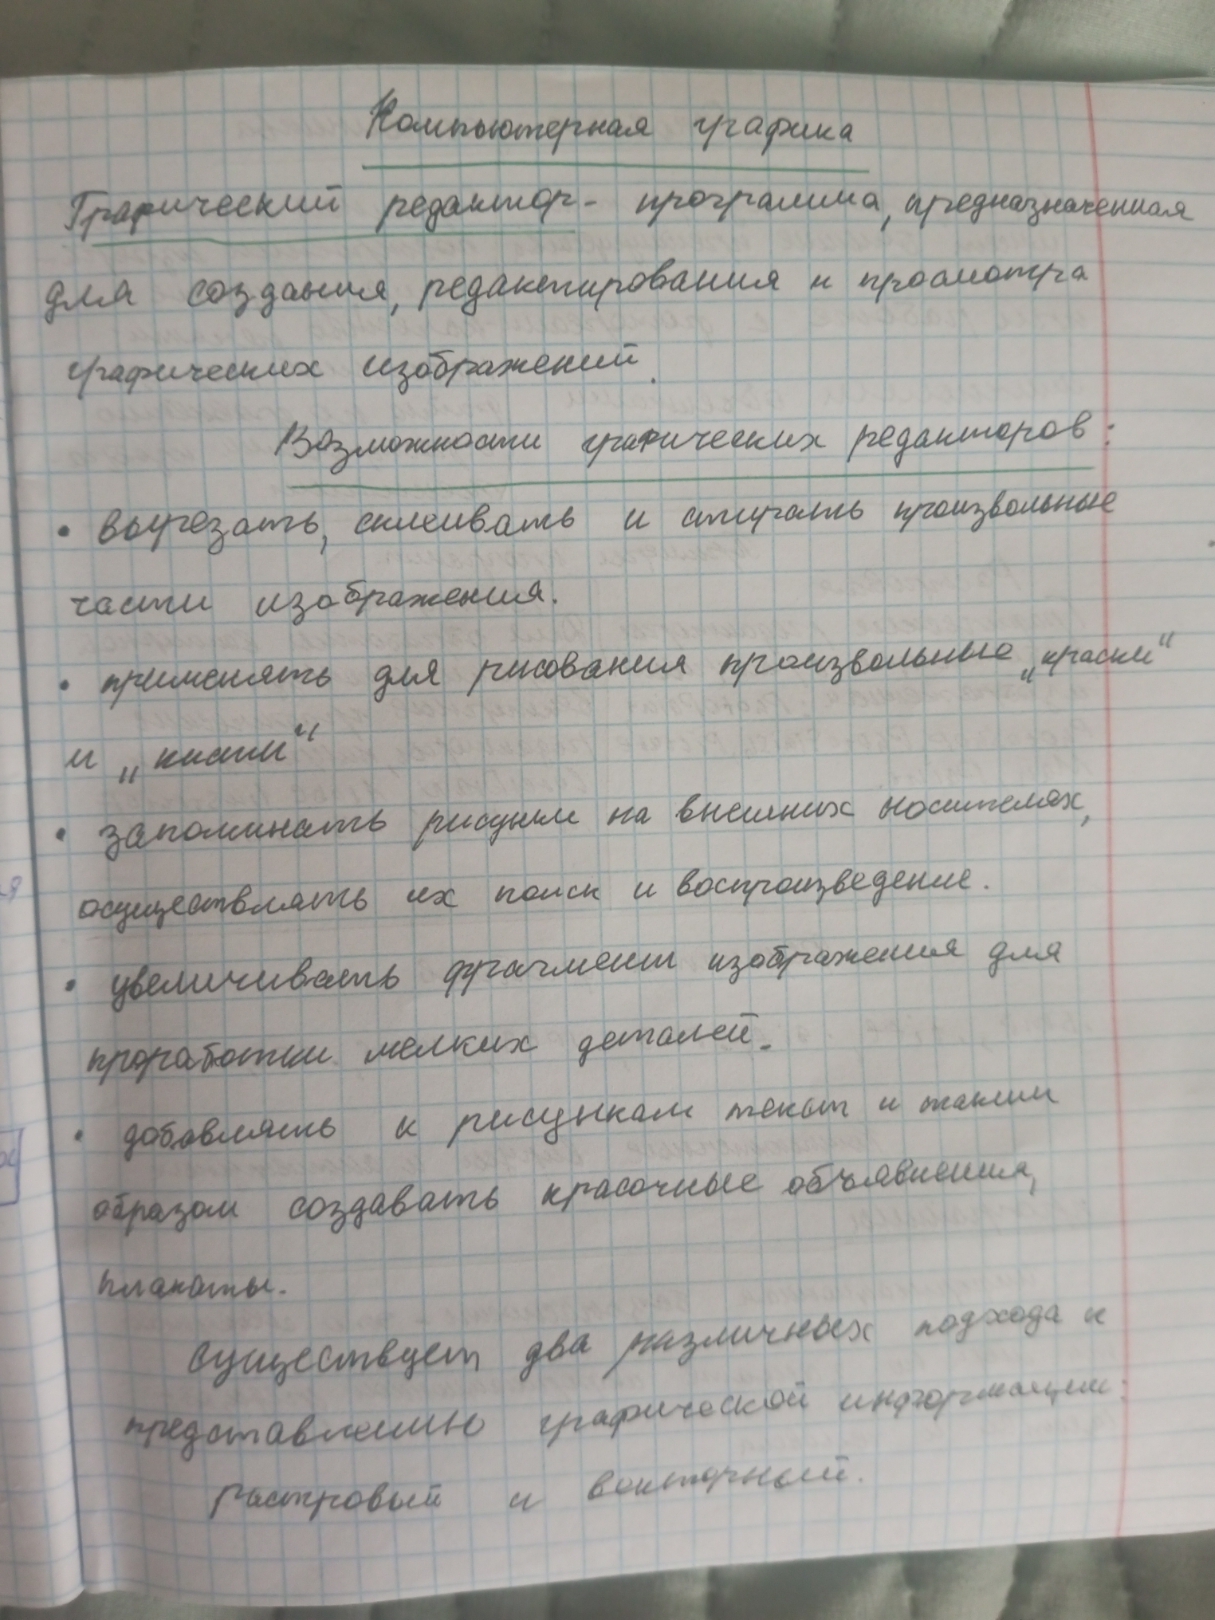 Компьютерная графика
Графический редактор - программа, предназначенная
для создания, редактирования и просмотра
графических изображений.
Возможности графических редакторов:
• вырезать, склеивать и стирать произвольные
части изображения.
• применять для рисования произвольные „краски“
и „кисти“
• запоминать рисунки на внешних носителях,
осуществлять их поиск и воспроизведение.
• увеличивать фрагмент изображения для
проработки мелких деталей.
• добавлять к рисункам текст и таким
образом создавать красочные объявления,
плакаты.
Существует два различных подхода к
представлению графической информации:
растровый и векторный.